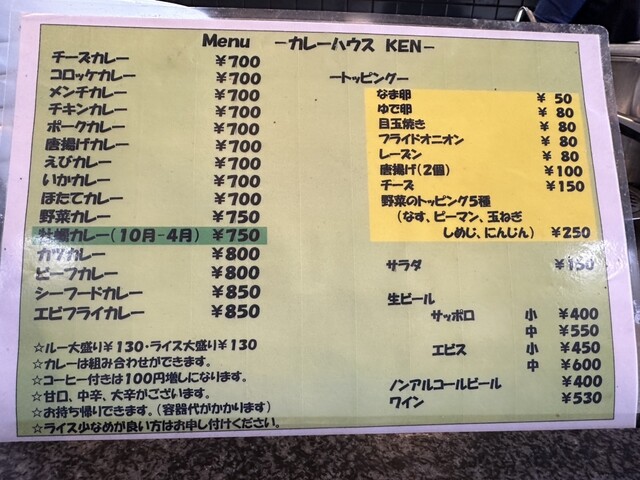 Menu －カレーハウス KEN－
チーズカレー ￥700
コロッケカレー ￥700
メンチカレー ￥700
チキンカレー ￥700
ポークカレー ￥700
唐揚げカレー ￥700
えびカレー ￥700
いかカレー ￥700
ほたてカレー ￥700
野菜カレー ￥750
牡蠣カレー（10月-4月） ￥750
カツカレー ￥800
ビーフカレー ￥800
シーフードカレー ￥850
エビフライカレー ￥850
☆ルー大盛り￥130・ライス大盛り￥130
☆カレーは組み合わせができます。
☆コーヒー付きは100円増しになります。
☆甘口、中辛、大辛がございます。
☆お持ち帰りできます。（容器代がかかります）
☆ライス少なめが良い方はお申し付けください。
－トッピング－
なま卵 ￥ 50
ゆで卵 ￥ 80
目玉焼き ￥ 80
フライドオニオン ￥ 80
レーズン ￥ 80
唐揚げ（2個） ￥100
チーズ ￥150
野菜のトッピング5種
（なす、ピーマン、玉ねぎ
しめじ、にんじん） ￥250
サラダ ￥150
生ビール
サッポロ 小 ￥400
中 ￥550
エビス 小 ￥450
中 ￥600
ノンアルコールビール ￥400
ワイン ￥530